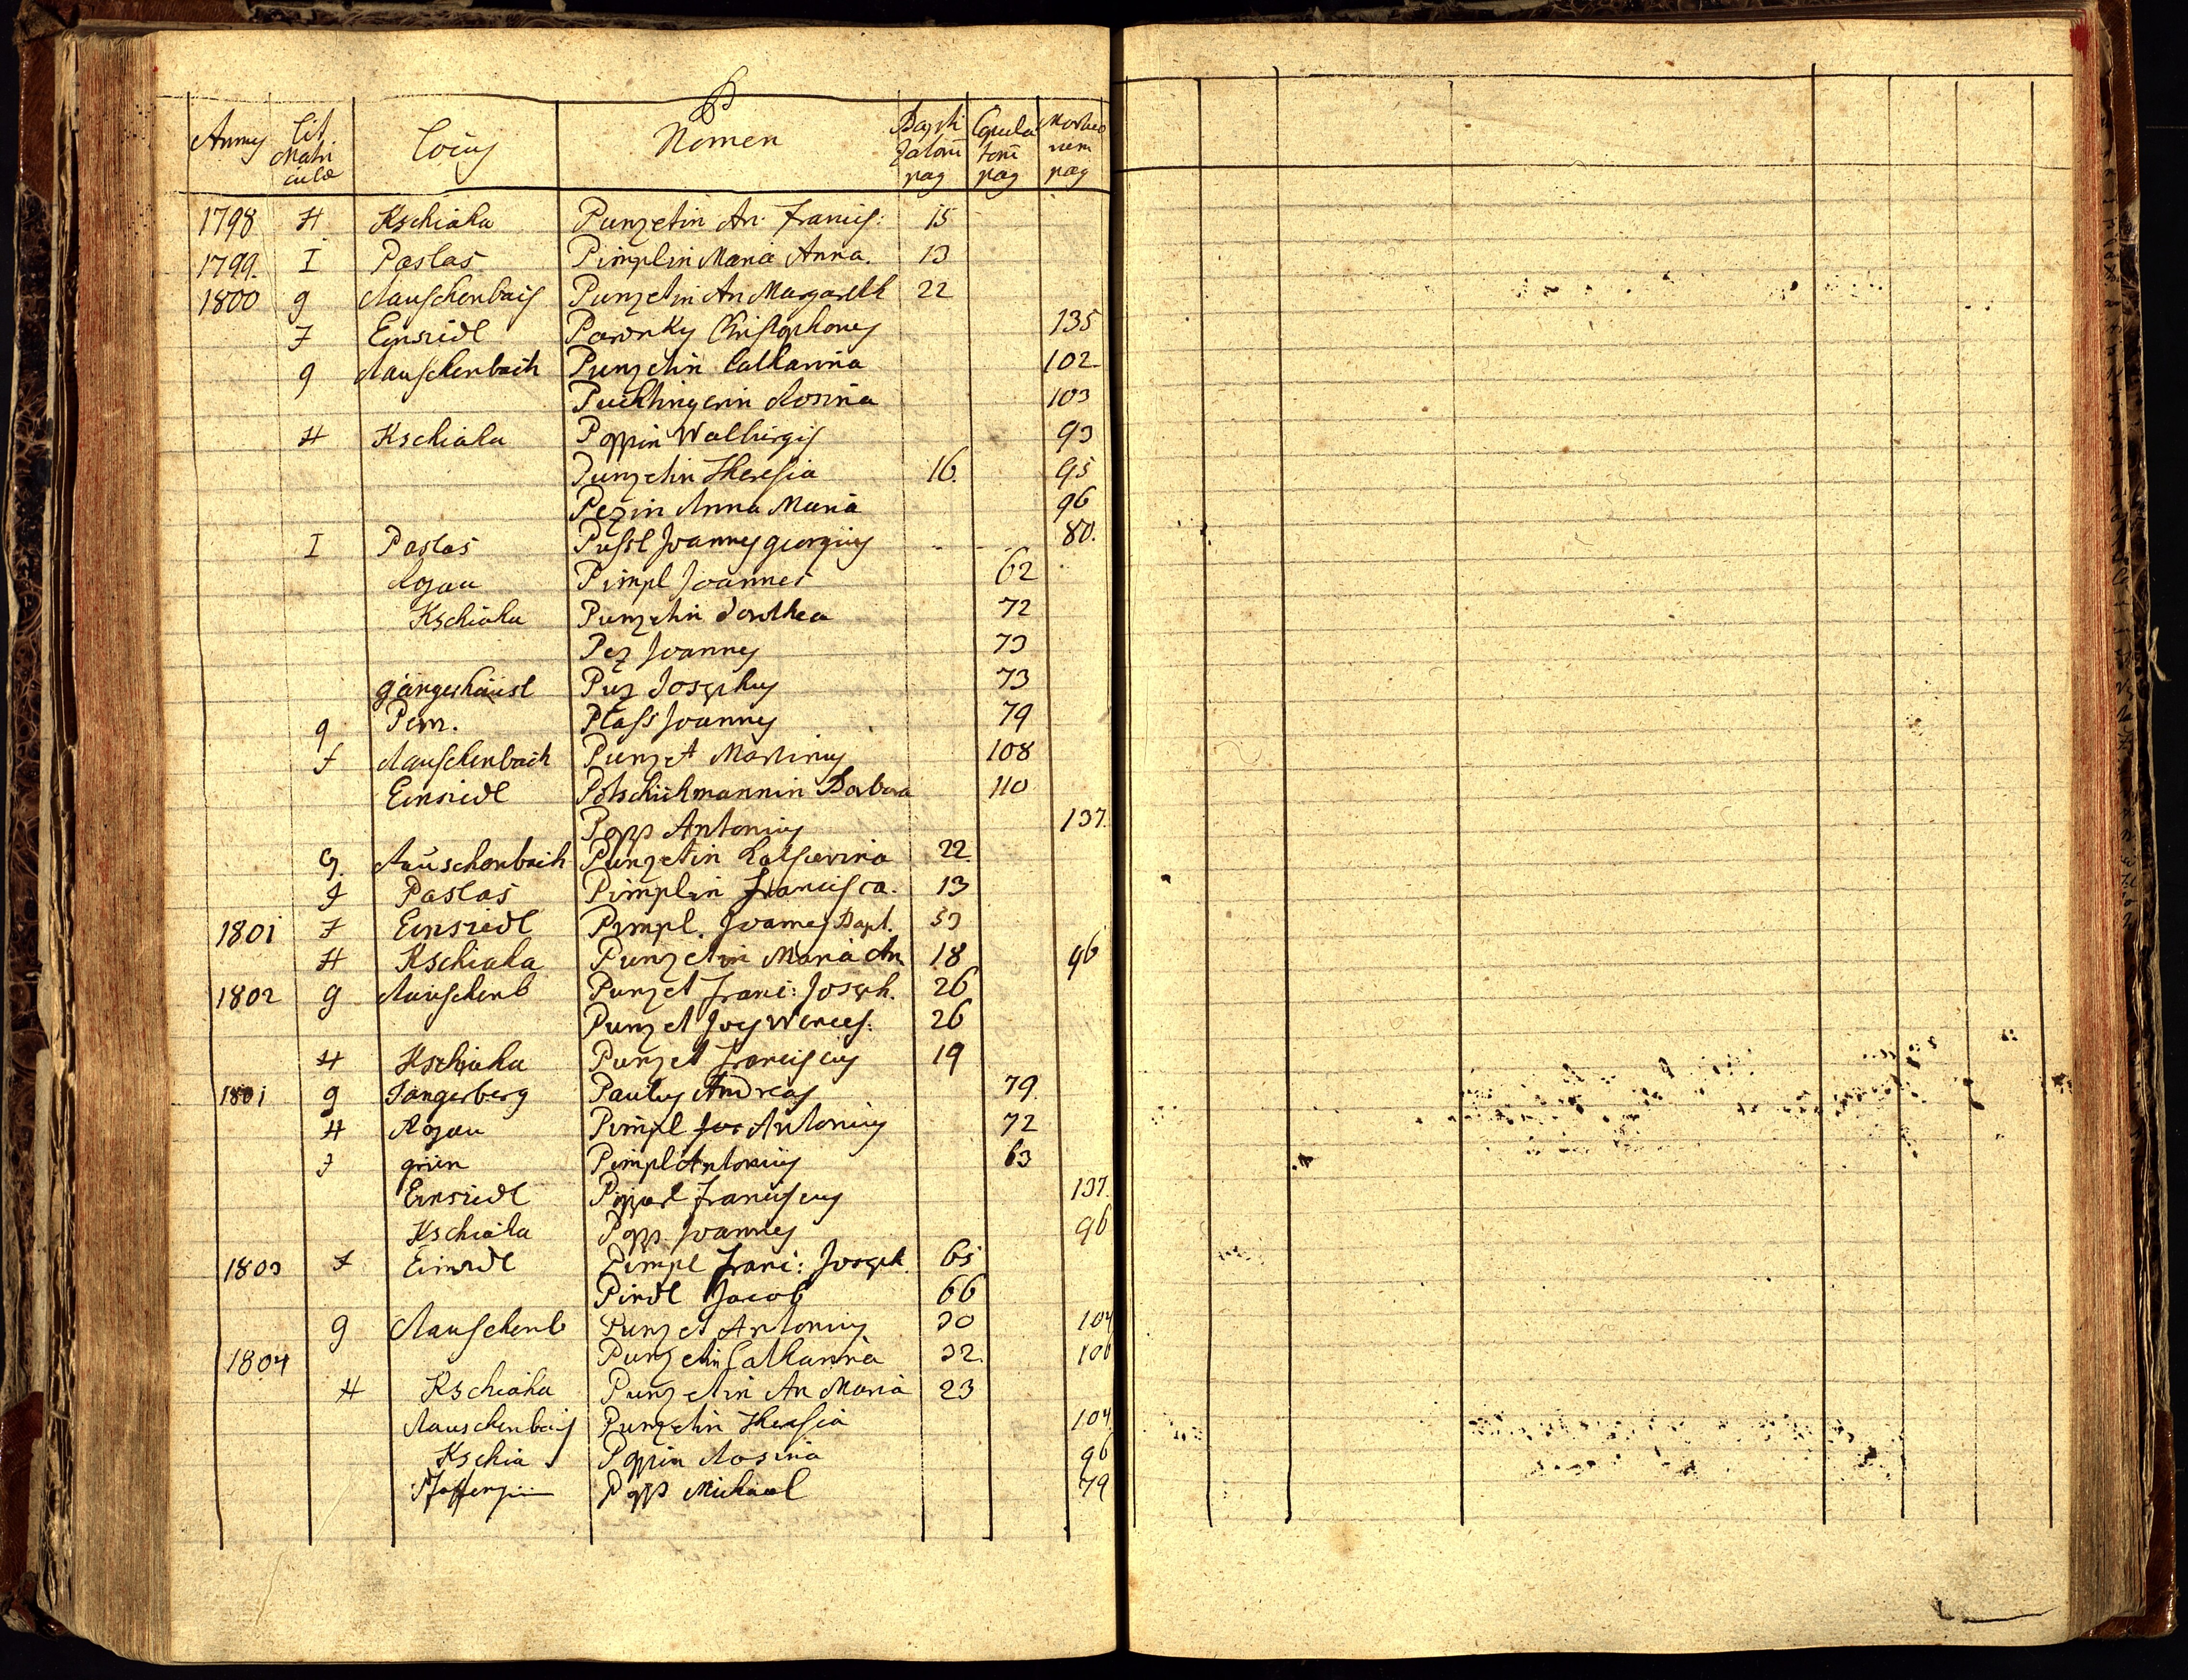 P
Annus Lit Matriculæ Locus Nomen Baptizatorũ pag Copulatorũ pag Mortuorum pag
1798 H Kschiaha Punzetin An: Francis: 15
1799. I Paslas Pimplin Maria Anna. 13
1800 g Rauschenbach Punzetin An Margareth 22
F Einsiedl Christophorus 135
g Rauschenbach Punzetin Catharina 102
Puchtingerin Rosina 103
H Kschiaha Poppin Walburgis 93
Punzetin Theresia 16. 95
Pezin Anna Maria 96
I Paslas Joannes georgius 80.
Rojau Pimpl Joannes 62
Kschiaha Punzetin Dorothea 72
Pez Joannes 73
gängerhäusl Puz Josephus 73
g Pern. Plass Joannes 79
F Rauschenbach Punzet Martinus 108
Einsiedl Potschükmannin Barbara 110
Popp Antonius 137.
g. Rauschenbach Punzetin Catharina 22.
I Paslas Pimplin Francisca. 13
1801 F Einsiedl Pimpl. Joannes Bapt. 53
H Kschiaha Punzetin Maria An 18 96
1802 g Rauschenb Punzet Franc: Joseph. 26
Punzet Joes Wences: 26
H Kschiaha Punzet Franciscus 19
1801 g Sangerberg Paulus Andreas 79.
H Rojau Pimpl Antonius 72
I grün Pimpl Antonius 63
Einsiedl Franciscus 137.
Kschiaha Popp Joannes 96
1803 F Einsidl Pimpl Franc: Joseph. 65
Pindl Jacob 66
g Rauschenb Punzet Antonius 30 104
1804 Punzetin Catharina 32. 106
H Kschiaha Punzetin An Maria 23
Rauschenbach Punzetin Theresia 104
Kschia Poppin Rosina 96
Popp Michael 79